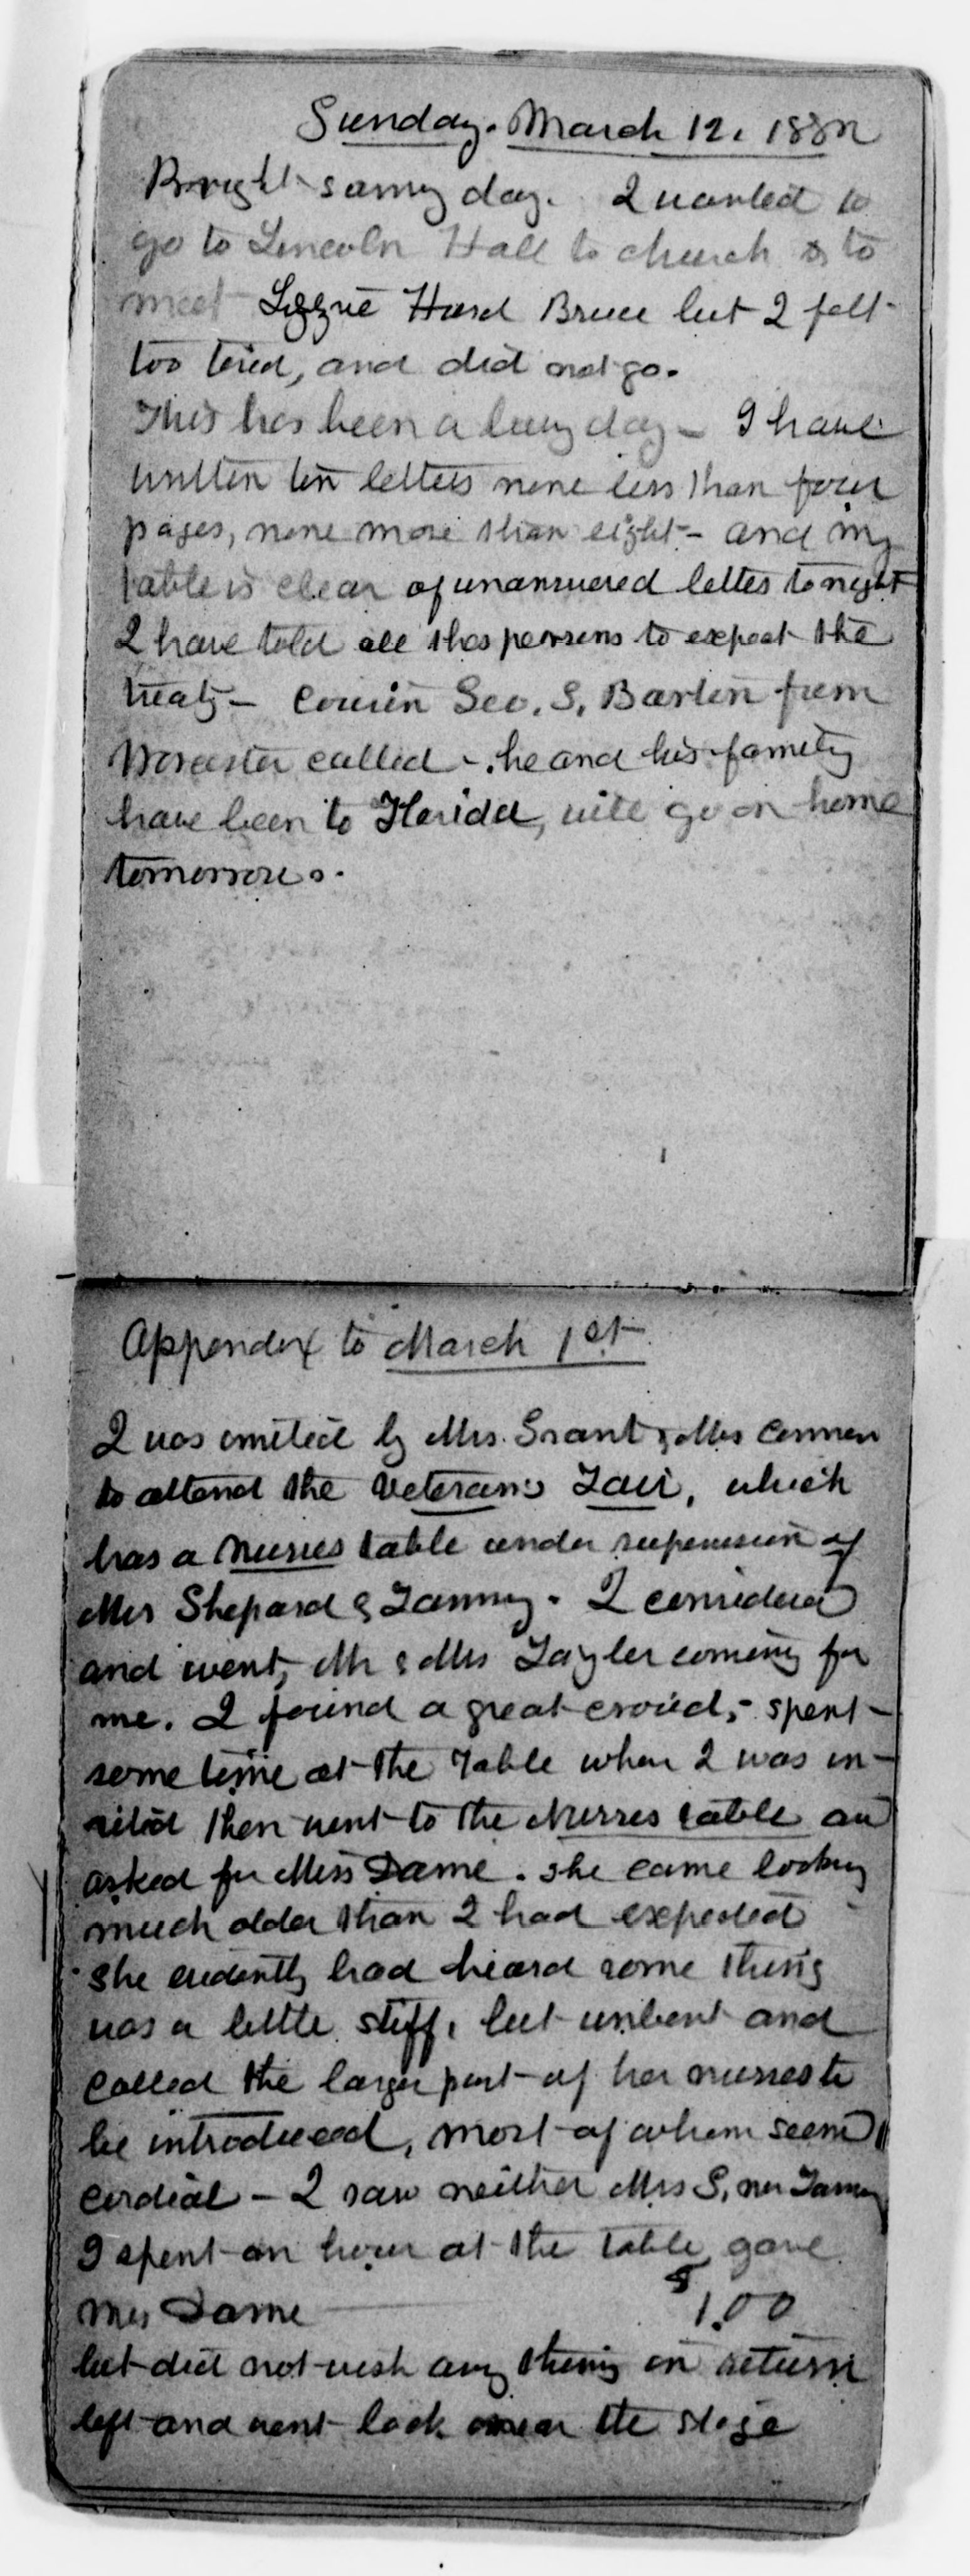 Sunday. March 12. 1882
Bright sunny day. I wanted to
go to Lincoln Hall to church & to
meet Lizzie Hurd Bruce but I felt
too tired, and did not go.
This has been a busy day - I have
written ten letters none less than four
pages, none more than eight - and my
table is clear of unanswered letters tonight
I have told all thes persons to expect the
treaty - Cousin Geo. S. Barton from
Worcester called - he and his family
have been to Florida, will go on home
tomorrow.
Appendix to March 1st
I was invited by Mrs. Grant & Mrs
to attend the Veterans Fair, which
has a nurses table under supervision of
Mrs Shepard & Tanney. I considered
and went, Mr & Mrs Tayler coming for
me. I found a great crowd, - spent
some time at the table when I was in-
vited then went to the Nurses table and
asked for Miss Dame. She came looking
much older than I had expected
She evidently had heard some thing
was a little stiff, but unbent and
called the larger part of her nurses to
be introduced, most of whom seemd
cordial - I saw neither Mrs S, nor Tanney
I spent an hour at the table, gave
Miss Dame $1.00
but did not wish any thing in return
left and went back near the stage